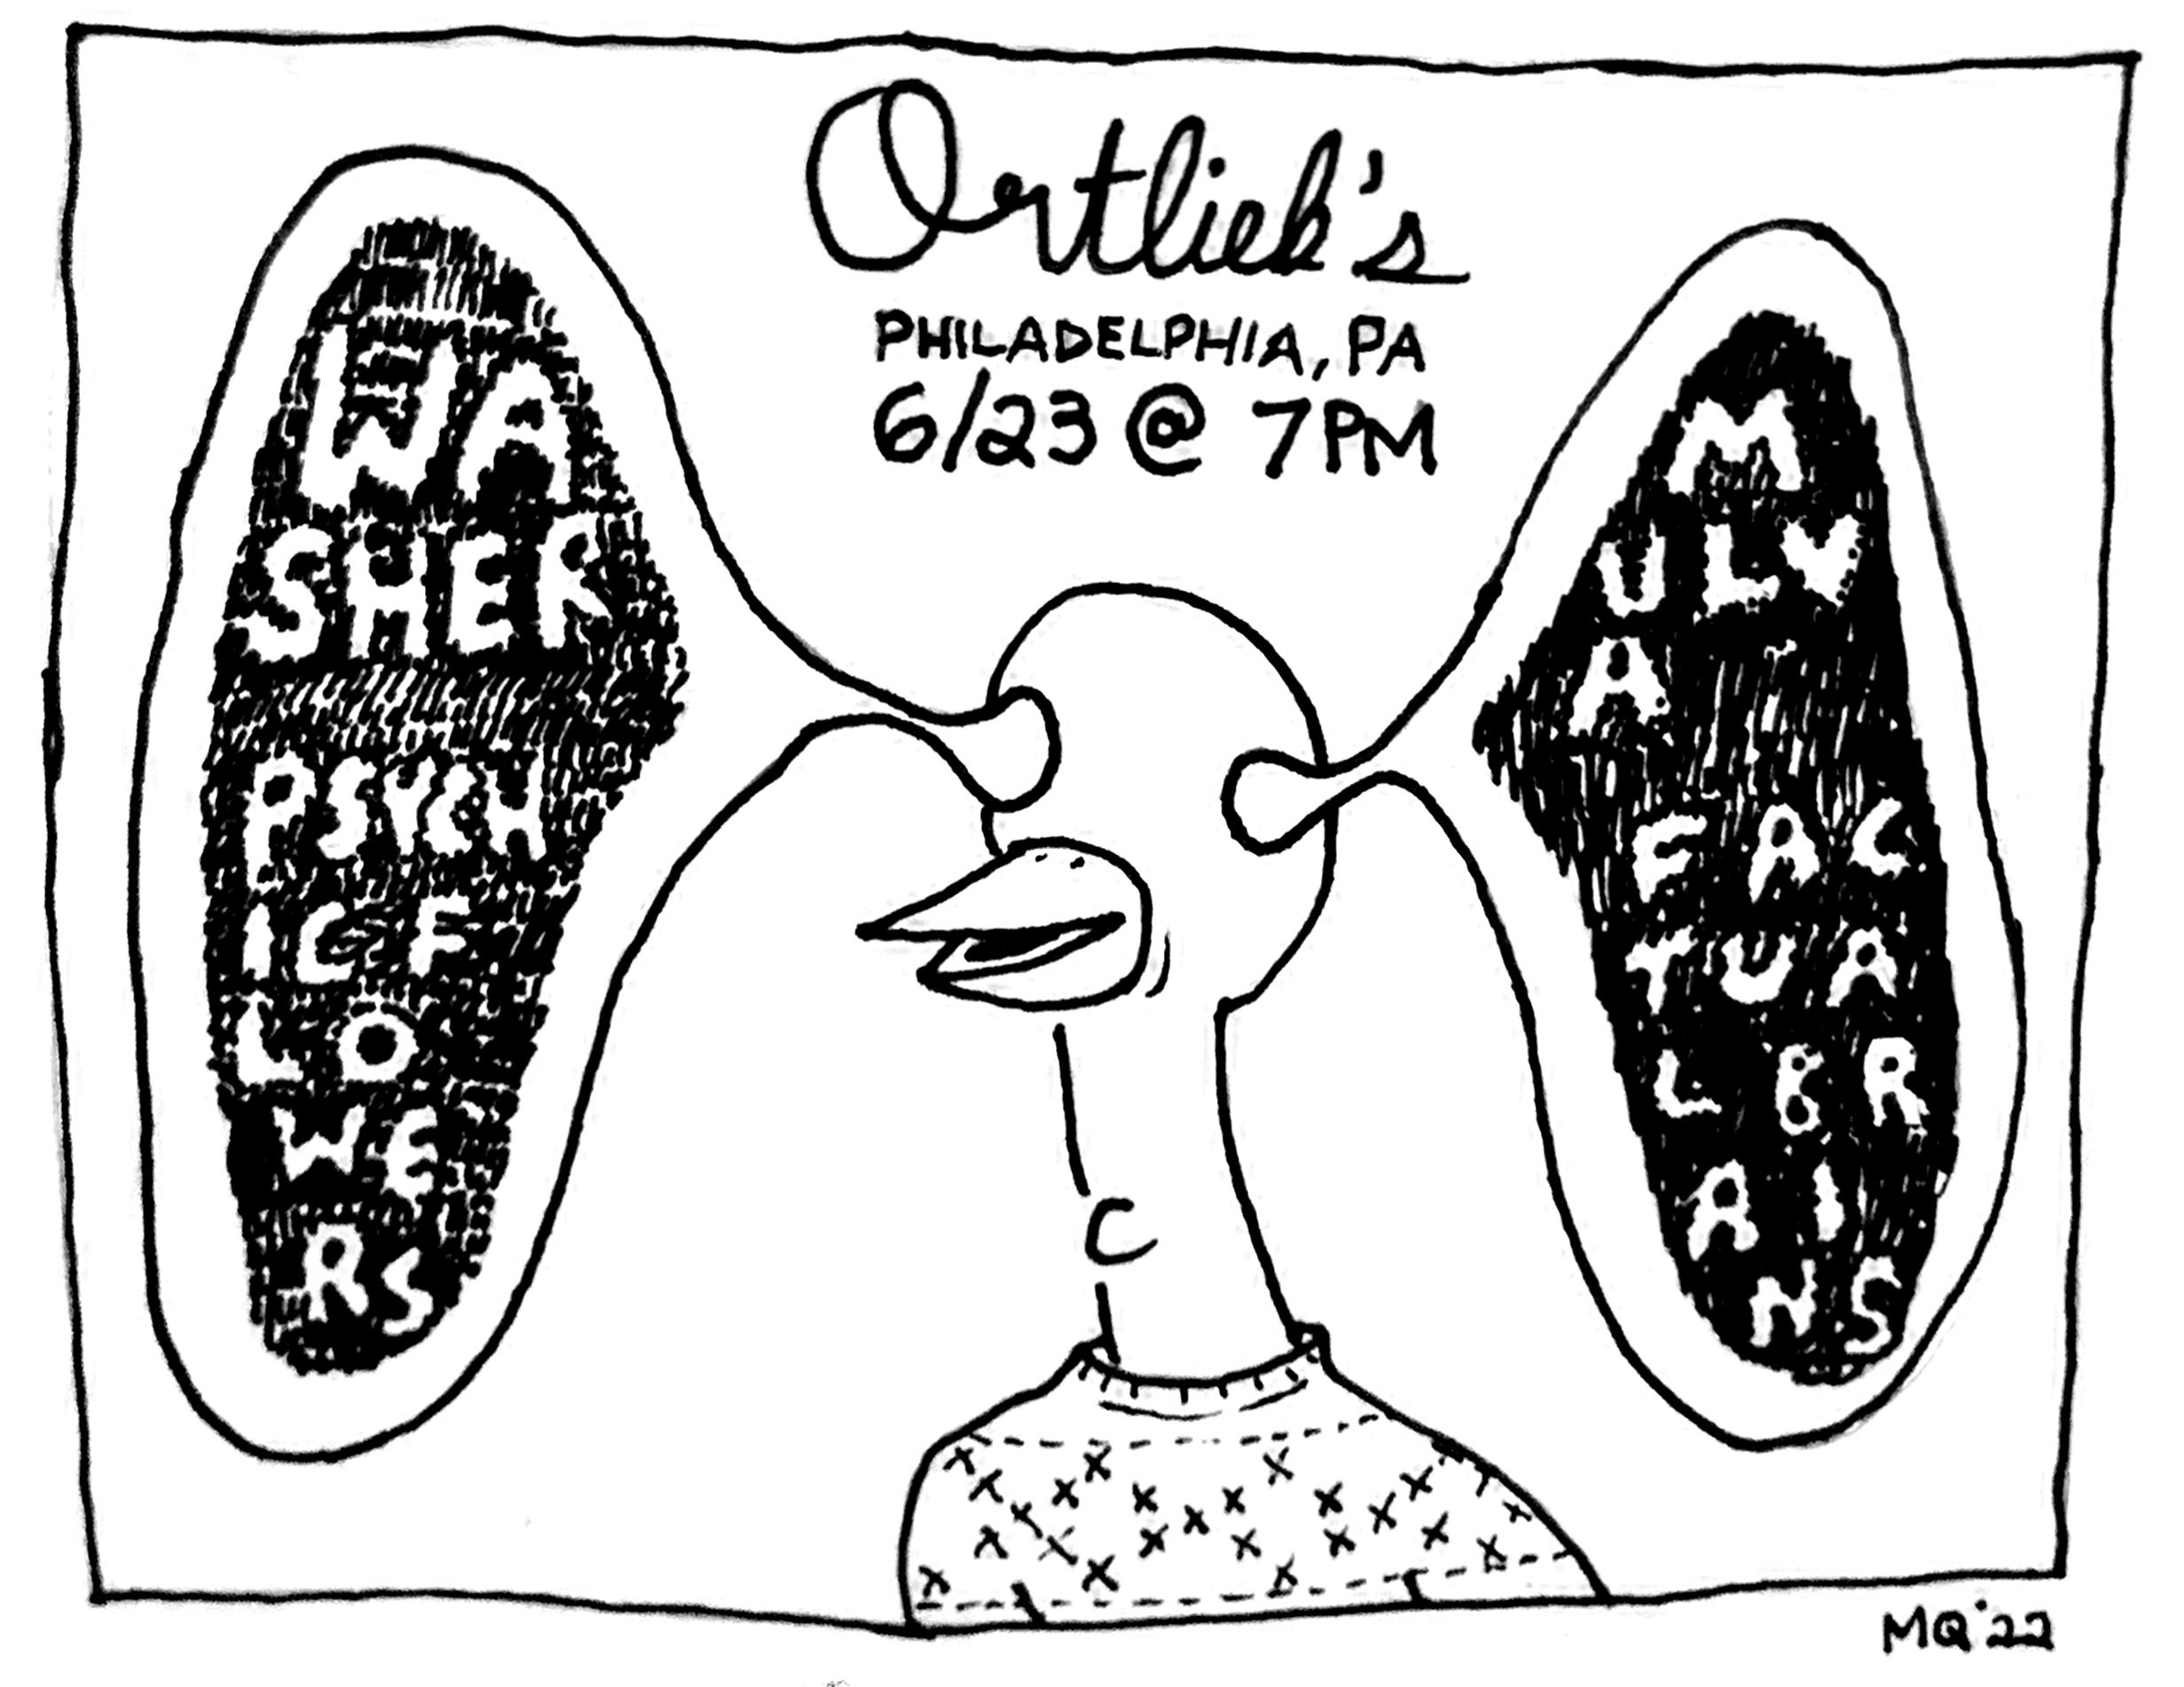 Ortlieb's
PHILADELPHIA, PA
6/23 @ 7PM
WA
SHER
PSYCH
IC F
LO
WE
RS
M
ULV
A
FAC
TUA
L BR
AI
NS
MQ'22